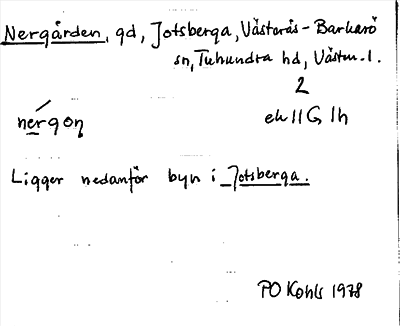 Nergården, gd, Jotsberga, Västerås-Barkarö
sn, Tuhundra hd, Västm.l.
2
nérgoŋ
ek 11G 1h
Ligger nedanför byn i Jotsberga.
PO Kohls 1978